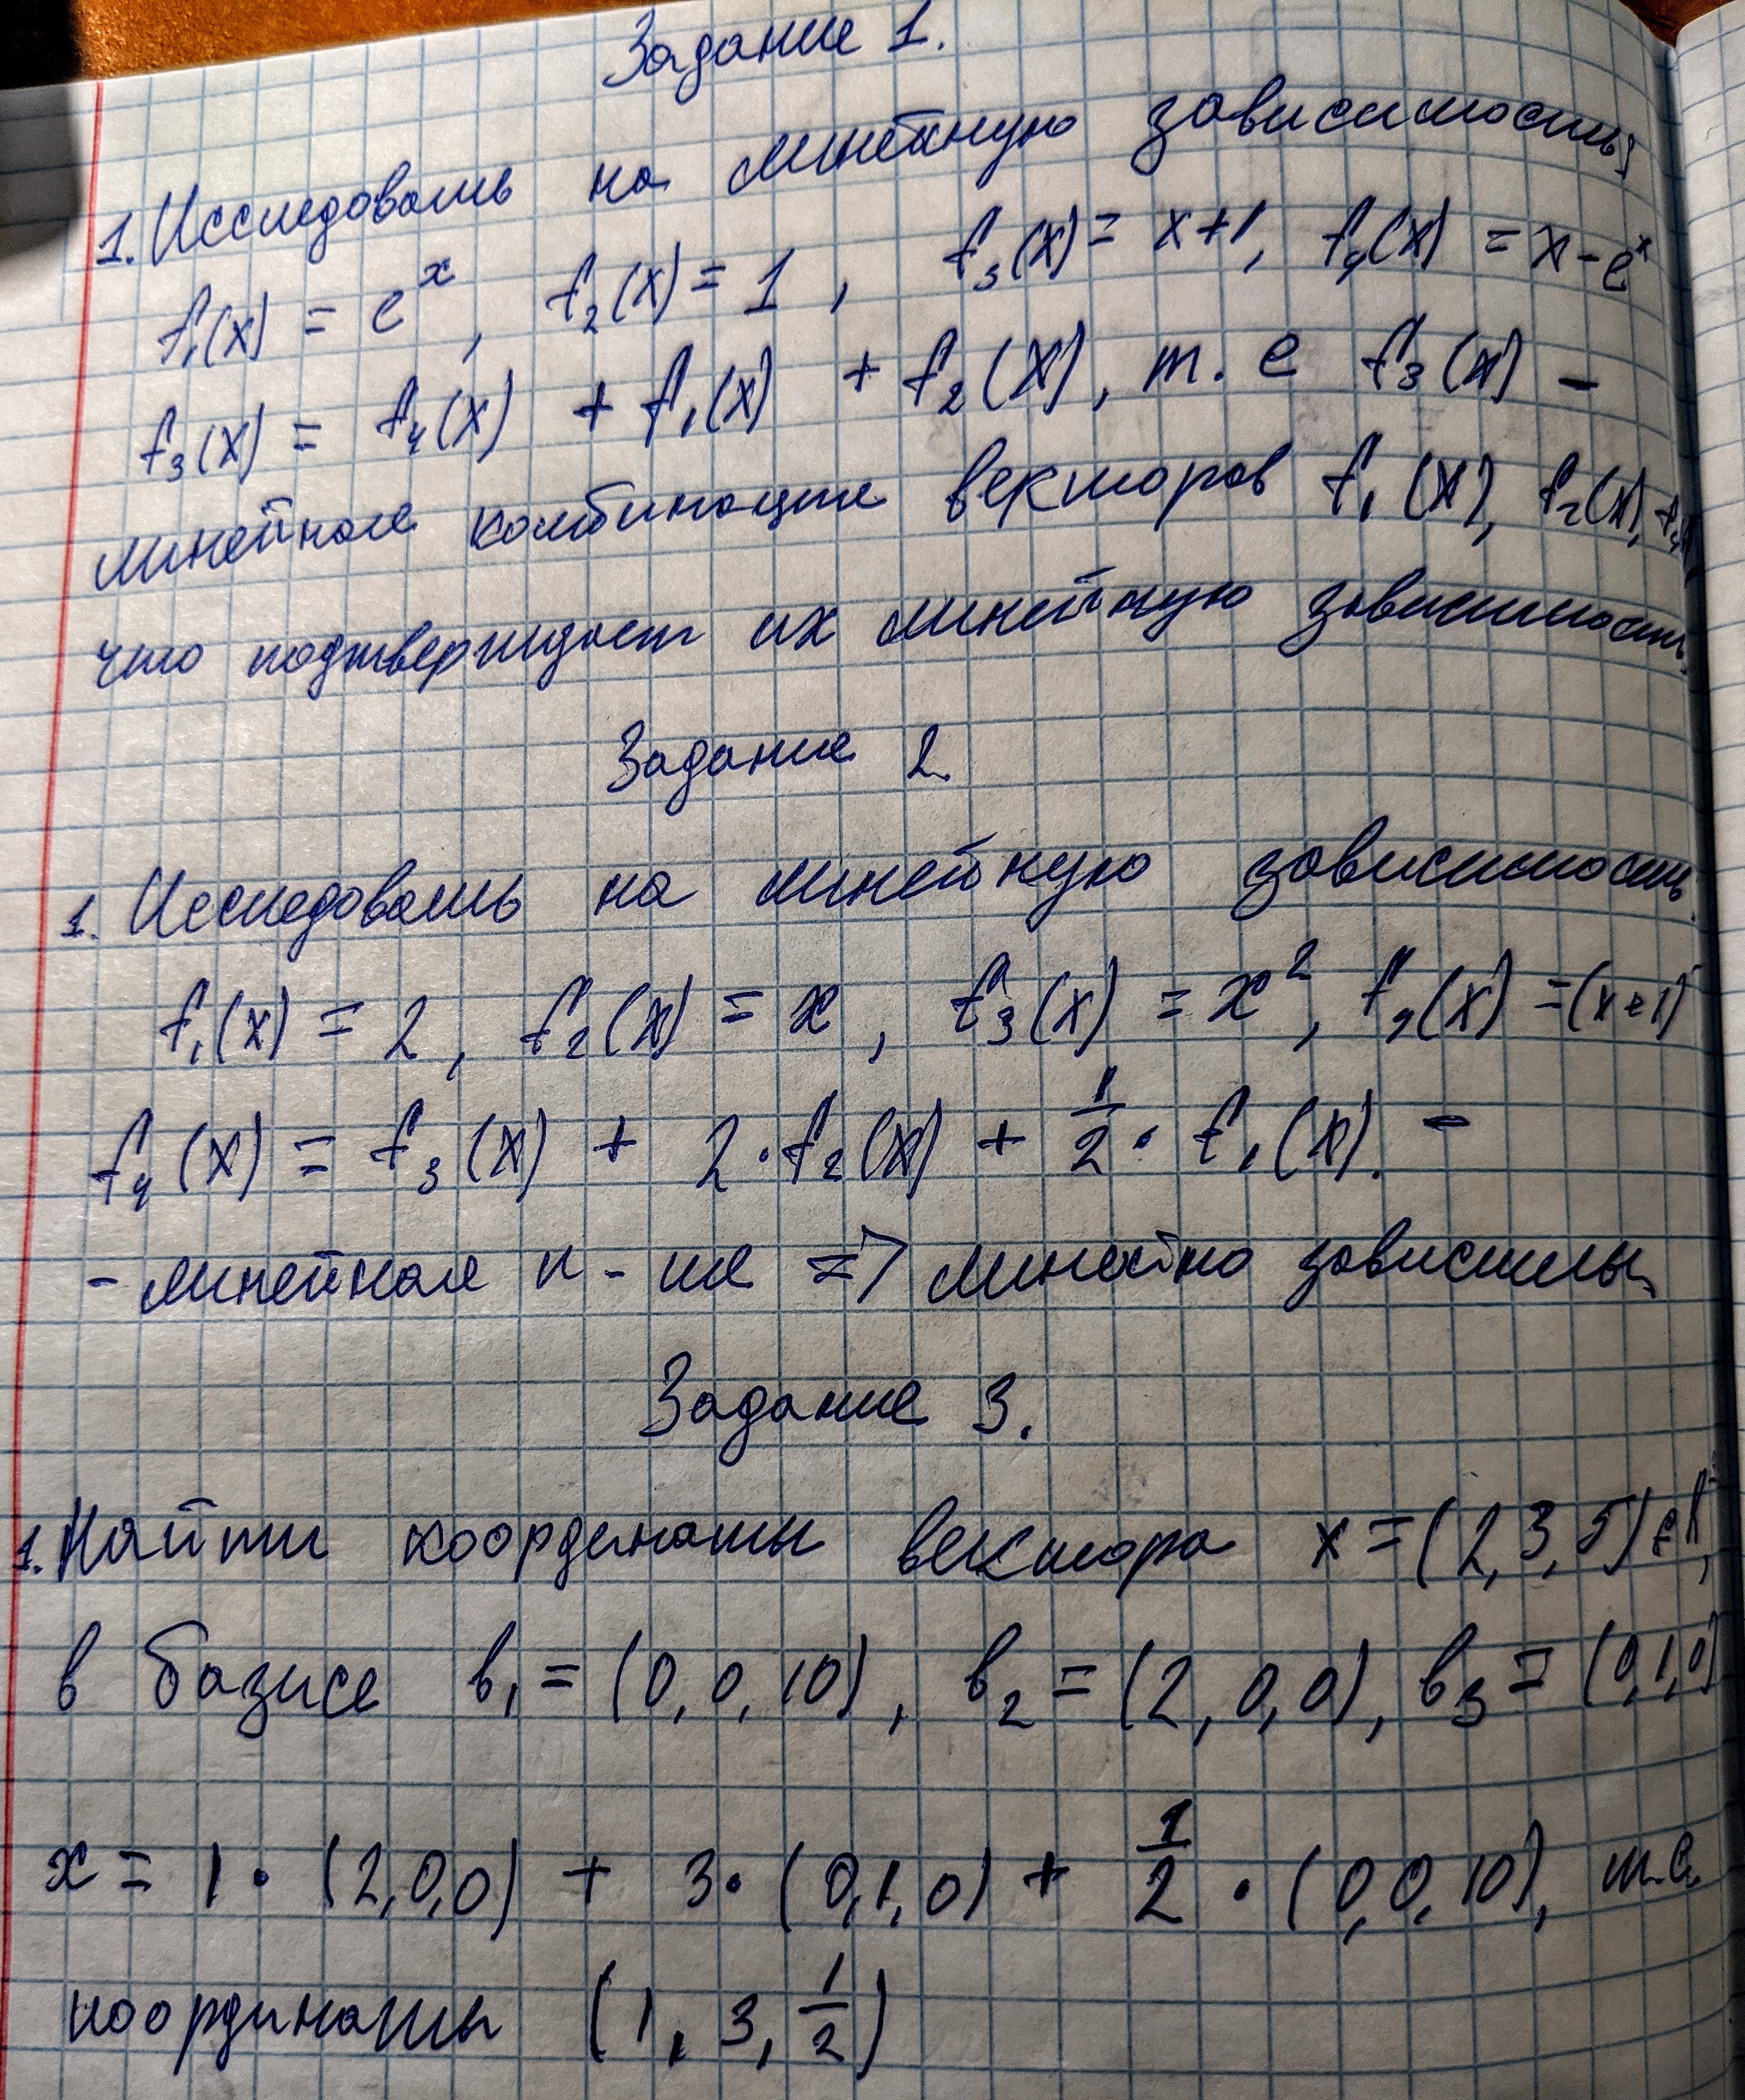 Задание 1.
1. Исследовать на линейную зависимость:
f₁(x) = eˣ, f₂(x) = 1, f₃(x) = x+1, f₄(x) = x-eˣ
f₃(x) = f₄(x) + f₁(x) + f₂(x), т.е f₃(x) -
линейная комбинация векторов f₁(x), f₂(x), f₄(x)
что подтверждает их линейную зависимость.
Задание 2
1. Исследовать на линейную зависимость.
f₁(x) = 2, f₂(x) = x, f₃(x) = x², f₄(x) = (x+1)
f₄(x) = f₃(x) + 2·f₂(x) + 1/2 · f₁(x). -
- линейная к-ия => линейно зависимы.
Задание 3.
1. Найти координаты вектора x = (2,3,5) ∈ R³,
в базисе b₁ = (0,0,10), b₂ = (2,0,0), b₃ = (0,1,0)
x = 1 · (2,0,0) + 3 · (0,1,0) + 1/2 · (0,0,10), т.е.
координаты (1, 3, 1/2)